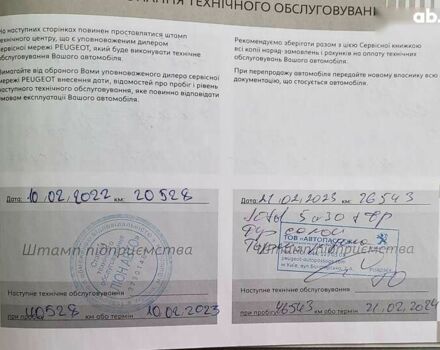 ННЯ ТЕХНІЧНОГО ОБСЛУГОВУВАННЯ
На наступних сторінках повинен проставлятися штамп
технічного центру, що є уповноваженим дилером
сервісної мережі PEUGEOT, який буде виконувати технічне
обслуговування Вашого автомобіля.
Вимагайте від обраного Вами уповноваженого дилера сервісної
мережі PEUGEOT внесення дати, відомостей про пробіг і рівень
наступного технічного обслуговування, яке повинно відповідати
умовам експлуатації Вашого автомобіля.
Рекомендуємо зберігати разом з цією Сервісної книжкою
всі копії наряд-замовлень і рахунків на оплату технічних
обслуговувань Вашого автомобіля.
При перепродажу автомобіля передайте новому власнику всю
документацію, що стосується автомобіля.
Дата: 10.02.2022 км: 20528
Штамп підприємства
Наступне технічне обслуговування
при пробігу 40528 км або термін 10.02.2023
Дата: 21.02.2023 км: 26543
5w30
ТОВ «АВТОПАСС
Штамп підприємства
Наступне технічне обслуговування
при пробігу 46543 км або термін 21.02.2024